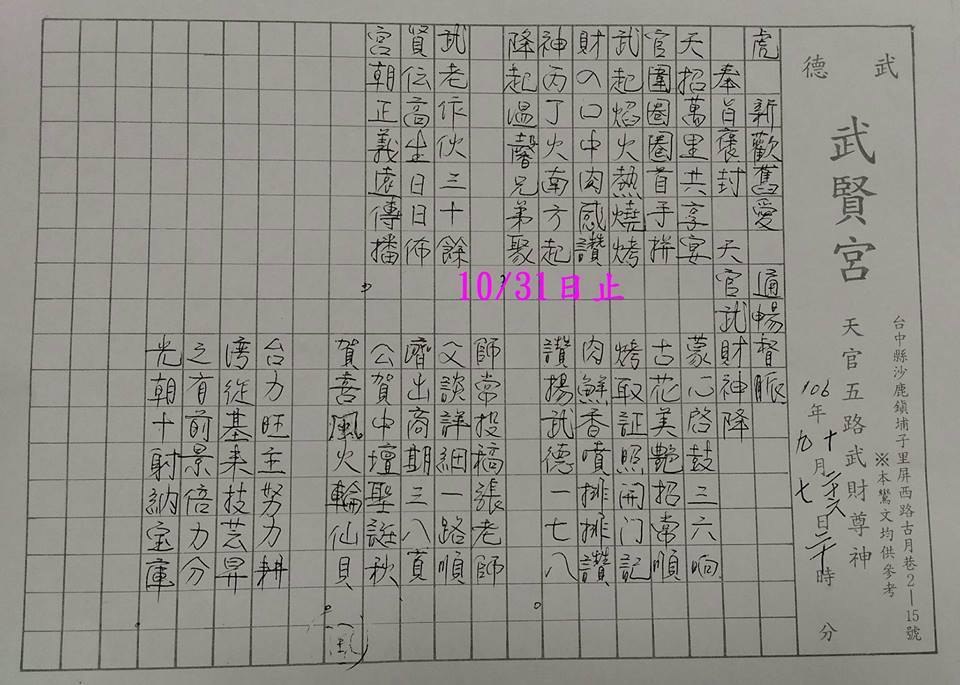 武德
武賢宮 天官五路武財尊神
台中縣沙鹿鎮埔子里屏西路古月巷2—15號
※本鸞文均供參考
106年十月日二十時 分
九 七
虎 新歡舊愛 通暢督脈
奉旨褒封 天官武財神降
天招萬里共享宴
官圍圈圈首手拼
武起焰火熱燒烤
財の口中肉感讚
神丙丁火南方起
降起溫馨兄弟聚。
蒙心啓鼓三六响
古花美艷招常順
烤取証照開门記
肉鮮香噴排排讚
讚揚武德一七八。
武老作伙三十餘
賢伝高生日日佈
宮朝正義遠傳播。
師常投稿張老師
父談詳細一路順
濟出商期三八頁
公賀中壇聖誕秋
賀喜風火輪仙貝。
台力旺主努力耕
湾從基来技芸昇
之有前景倍力分
光朝十射納宝庫
10/31日止